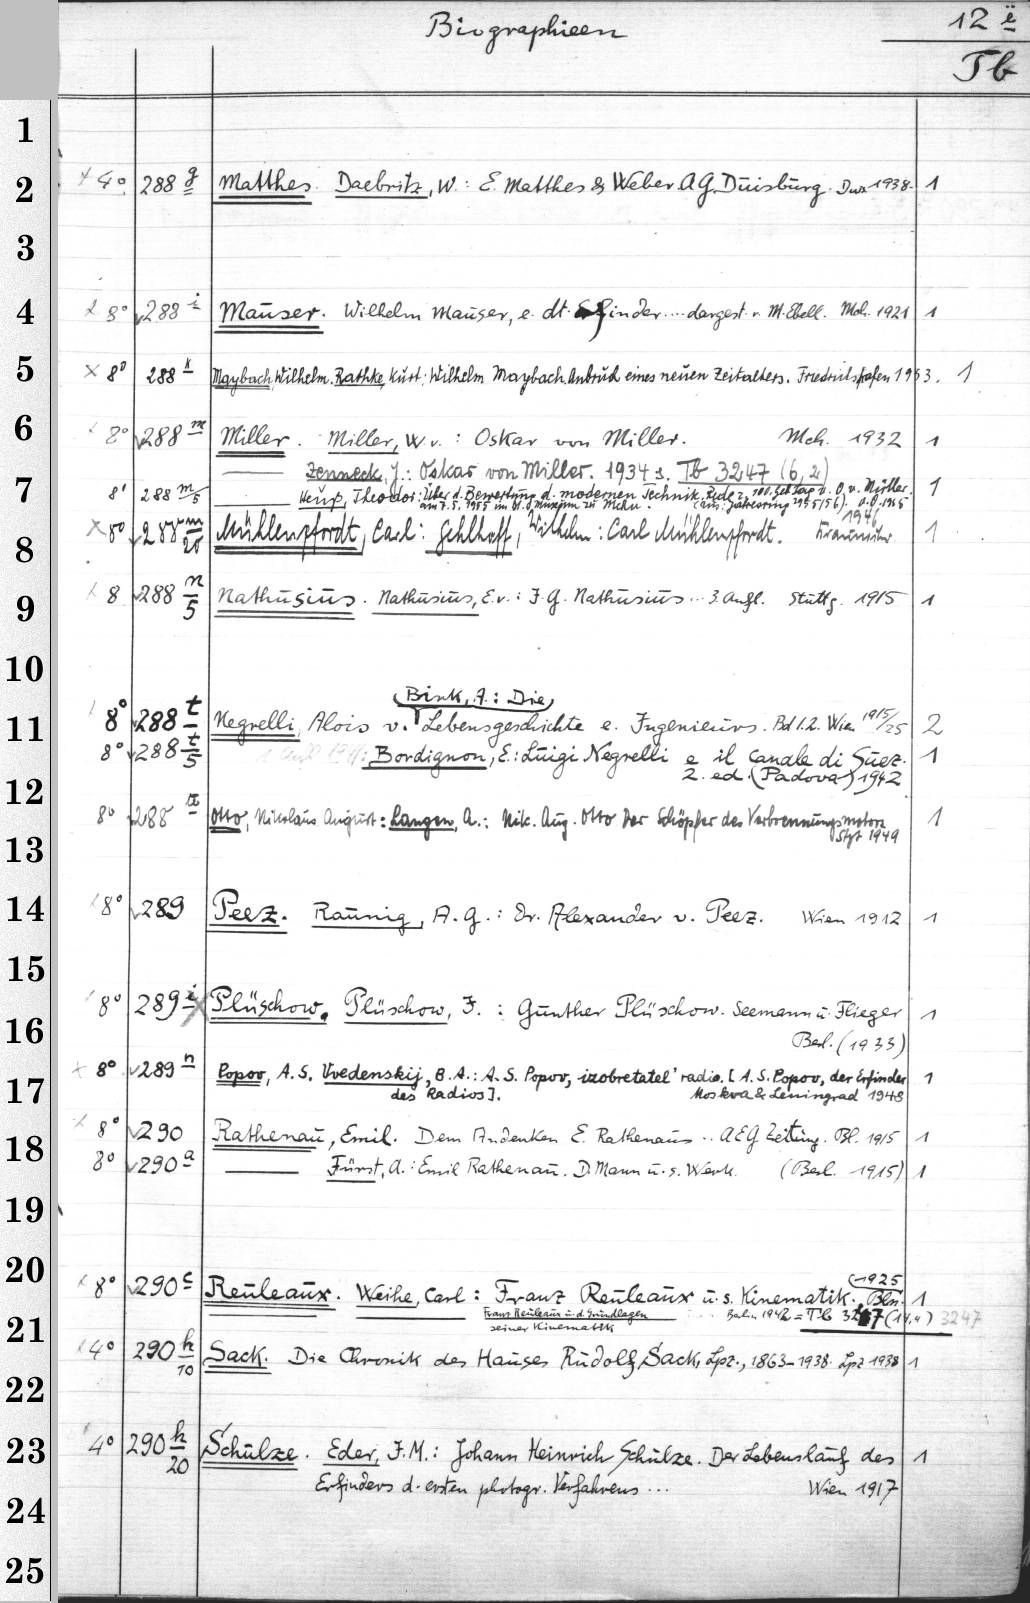 Biographieen
12 ë
Tb
1
2 4° 288 g Matthes. Daebritz, W.: E. Matthes & Weber A.G. Duisburg. 1938. 1
3
4 8° 288 i Mauser. Wilhelm Mauser, e. dt. Erfinder .... dargest. v. M. Ebell. Mch. 1921 1
5 × 8° 288 k Maybach, Wilhelm. Rathke, Kurt: Wilhelm Maybach. Anbruch eines neuen Zeitalters. Friedrichshafen 1953. 1
6 8° 288 m Miller. Miller, W. v.: Oskar von Miller. Mch. 1932 1
Zenneck, J.: Oskar von Miller. 1934 s. Tb 3247 (6,2)
7 8° 288 m/5 Heuß, Theodor: Über d. Bewertung d. modernen Technik. Rede z. 100. Geb. Tag v. O. v. Miller. 1
am 7.5.1955 im Dt. Museum zu Mchn. (aus: Jahresring 1955/56). o.O. 1955
8 × 8° 288 m/20 Mühlenpfordt, Carl: Gehlhoff, Wilhelm: Carl Mühlenpfordt. 1946 1
9 8 288 n/5 Nathusius. Nathusius, E. v.: J. G. Nathusius ... 3. Aufl. Stuttg. 1915 1
10
Birk, A.: Die
11 8° 288 t Negrelli, Alois v. Lebensgeschichte e. Ingenieurs. Bd 1.2. Wien 1915/25 2
8° 288 t/5 Bordignon, E.: Luigi Negrelli e il canale di Suez. 1
2. ed. (Padova) 1942
12
8° 288 Otto, Nikolaus August: Langen, A.: Nik. Aug. Otto der Schöpfer des Verbrennungsmotors 1
Stgt 1949
13
14 8° 289 Peez. Raunig, A. G.: Dr. Alexander v. Peez. Wien 1912 1
15
8° 289 i Plüschow. Plüschow, F.: Gunther Plüschow. Seemann u. Flieger 1
16 Berl. (1933)
17 × 8° 289 n Popov, A. S. Vvedenskij, B. A.: A. S. Popov, izobretatel' radio. [A. S. Popov, der Erfinder 1
des Radios]. Moskva & Leningrad 1948
18 8° 290 Rathenau, Emil. Dem Andenken E. Rathenaus .. AEG Zeitung. Bl. 1915 1
8° 290 a Fürst, A.: Emil Rathenau. D. Mann u. s. Werk. (Berl. 1915) 1
19
20 (1925
8° 290 c Reuleaux. Weihe, Carl: Franz Reuleaux u. s. Kinematik. Bln. 1
21 Franz Reuleaux u. d. Grundlagen Berlin 1942 = Tb 3247 (14,4) 3247
seiner Kinematik
4° 290 h/10 Sack. Die Chronik des Hauses Rudolf Sack, Lpz., 1863–1938. Lpz 1938 1
22
23 4° 290 h/20 Schulze. Eder, J. M.: Johann Heinrich Schulze. Der Lebenslauf des 1
Erfinders d. ersten photogr. Verfahrens ... Wien 1917
24
25